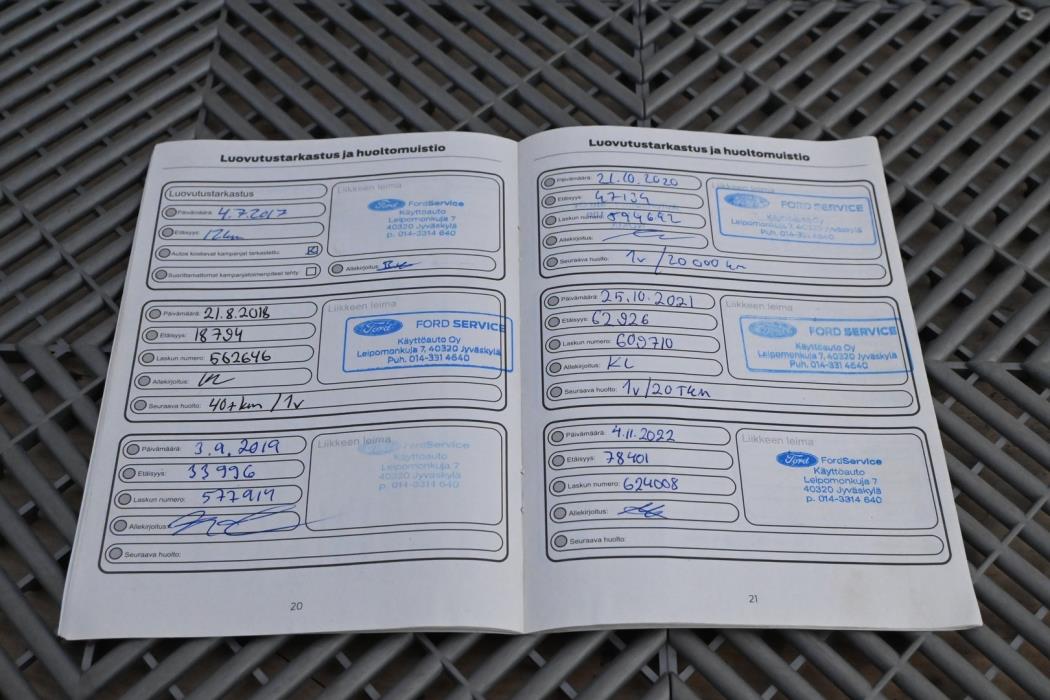 Luovutustarkastus ja huoltomuistio
Luovutustarkastus
Päivämäärä: 4.7.2017
Etäisyys: 12km
Autoa koskevat kampanjat tarkastettu
Suorittamattomat kampanjatoimenpiteet tehty
Liikkeen leima
Ford FordService
Käyttöauto
Leipomonkuja 7
40320 Jyväskylä
p. 014-3314 640
Allekirjoitus:
Päivämäärä: 21.8.2018
Etäisyys: 18794
Laskun numero: 562646
Allekirjoitus:
Seuraava huolto: 40tkm / 1v
Liikkeen leima
Ford FORD SERVICE
Käyttöauto Oy
Leipomonkuja 7, 40320 Jyväskylä
Puh. 014-331 4640
Päivämäärä: 3.9.2019
Etäisyys: 33996
Laskun numero: 577917
Allekirjoitus:
Seuraava huolto:
Liikkeen leima
FordService
Käyttöauto
Leipomonkuja 7
40320 Jyväskylä
p. 014-3314 640
20
Luovutustarkastus ja huoltomuistio
Päivämäärä: 21.10.2020
Etäisyys: 47134
Laskun numero: 594642
Allekirjoitus:
Seuraava huolto: 1v / 20 000 km
Liikkeen leima
Ford FORD SERVICE
Käyttöauto Oy
Leipomonkuja 7, 40320 Jyväskylä
Puh. 014-331 4640
Päivämäärä: 25.10.2021
Etäisyys: 62926
Laskun numero: 609710
Allekirjoitus: KL
Seuraava huolto: 1v / 20 Tkm
Liikkeen leima
Ford FORD SERVICE
Käyttöauto Oy
Leipomonkuja 7, 40320 Jyväskylä
Puh. 014-331 4640
Päivämäärä: 4.11.2022
Etäisyys: 78401
Laskun numero: 624008
Allekirjoitus:
Seuraava huolto:
Liikkeen leima
Ford FordService
Käyttöauto
Leipomonkuja 7
40320 Jyväskylä
p. 014-3314 640
21